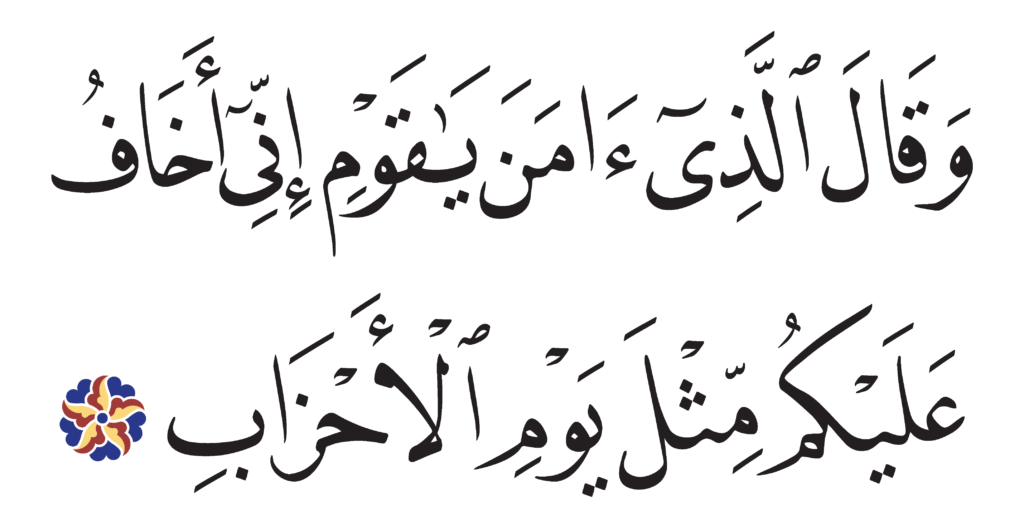 وَقَالَ ٱلَّذِىٓ ءَامَنَ يَـٰقَوْمِ إِنِّىٓ أَخَافُ
عَلَيْكُم مِّثْلَ يَوْمِ ٱلْأَحْزَابِ